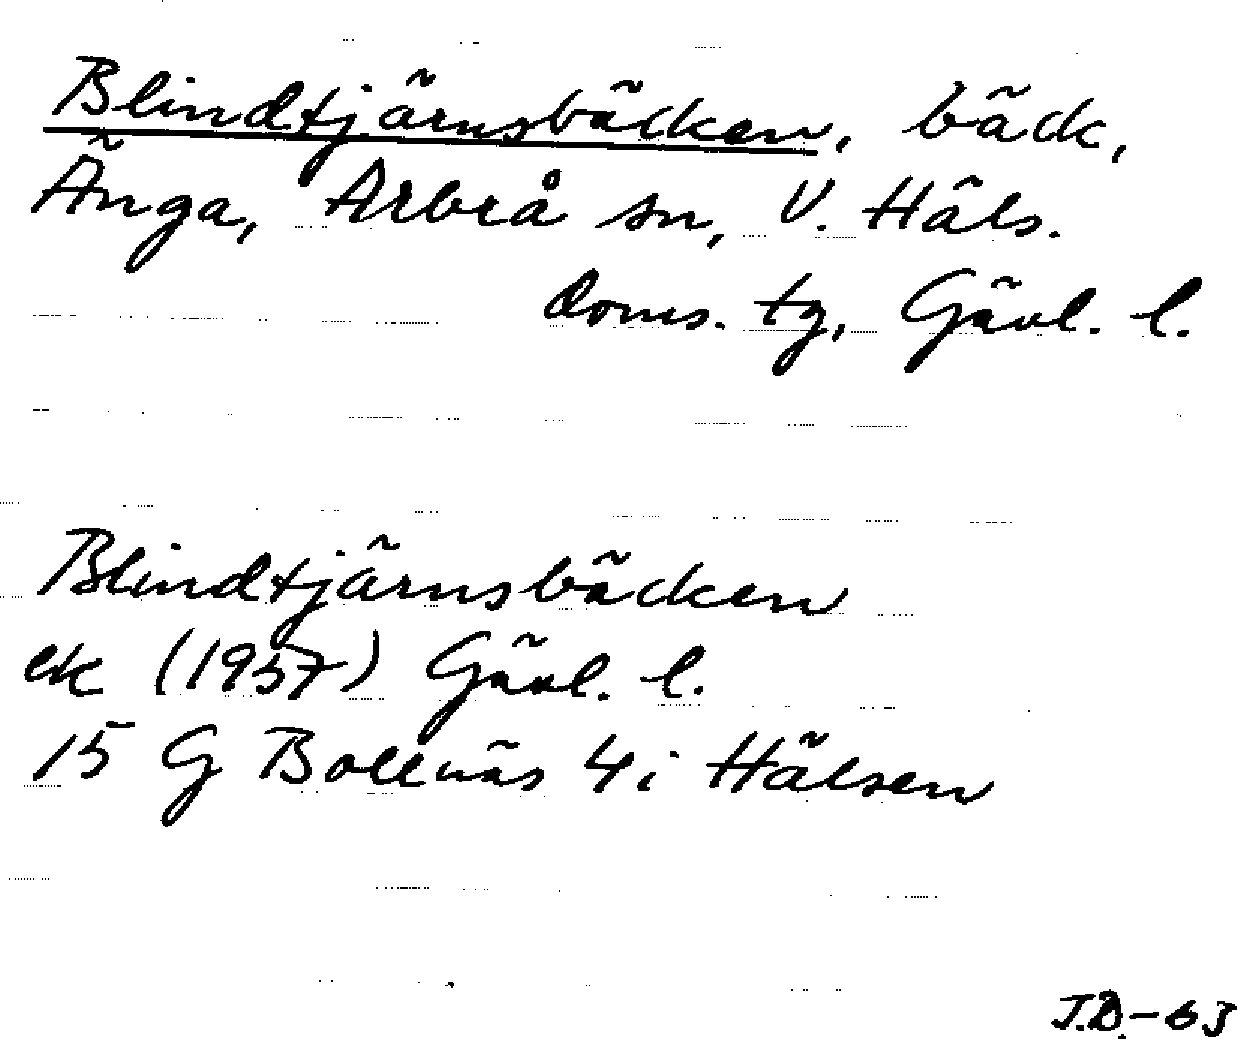 Blindtjärnsbäcken, bäck,
Änga, Arbrå sn, V. Häls.
doms. tg, Gävl. l.
Blindtjärnsbäcken
ek (1957) Gävl. l.
15 G Bollnäs 4i Hälsen
J.D.-63